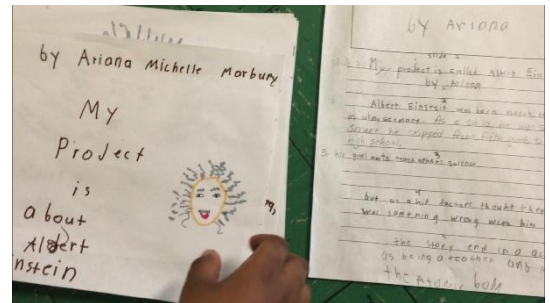 by Ariana Michelle Marbury
My
Project
is
about
Albert
nstein
by Ariana
slide 1
My project is called Albert Ein
by Ariana
2
Albert Einstein was born march
in ulm, germany. As a child he was so
smart he skipped from fifth grade to
high school.
3
3. his goal was to teach others science
4
but as a kid doctors thought there
was something wrong with him
the story end in a
as being a teacher and
the Atomic bom